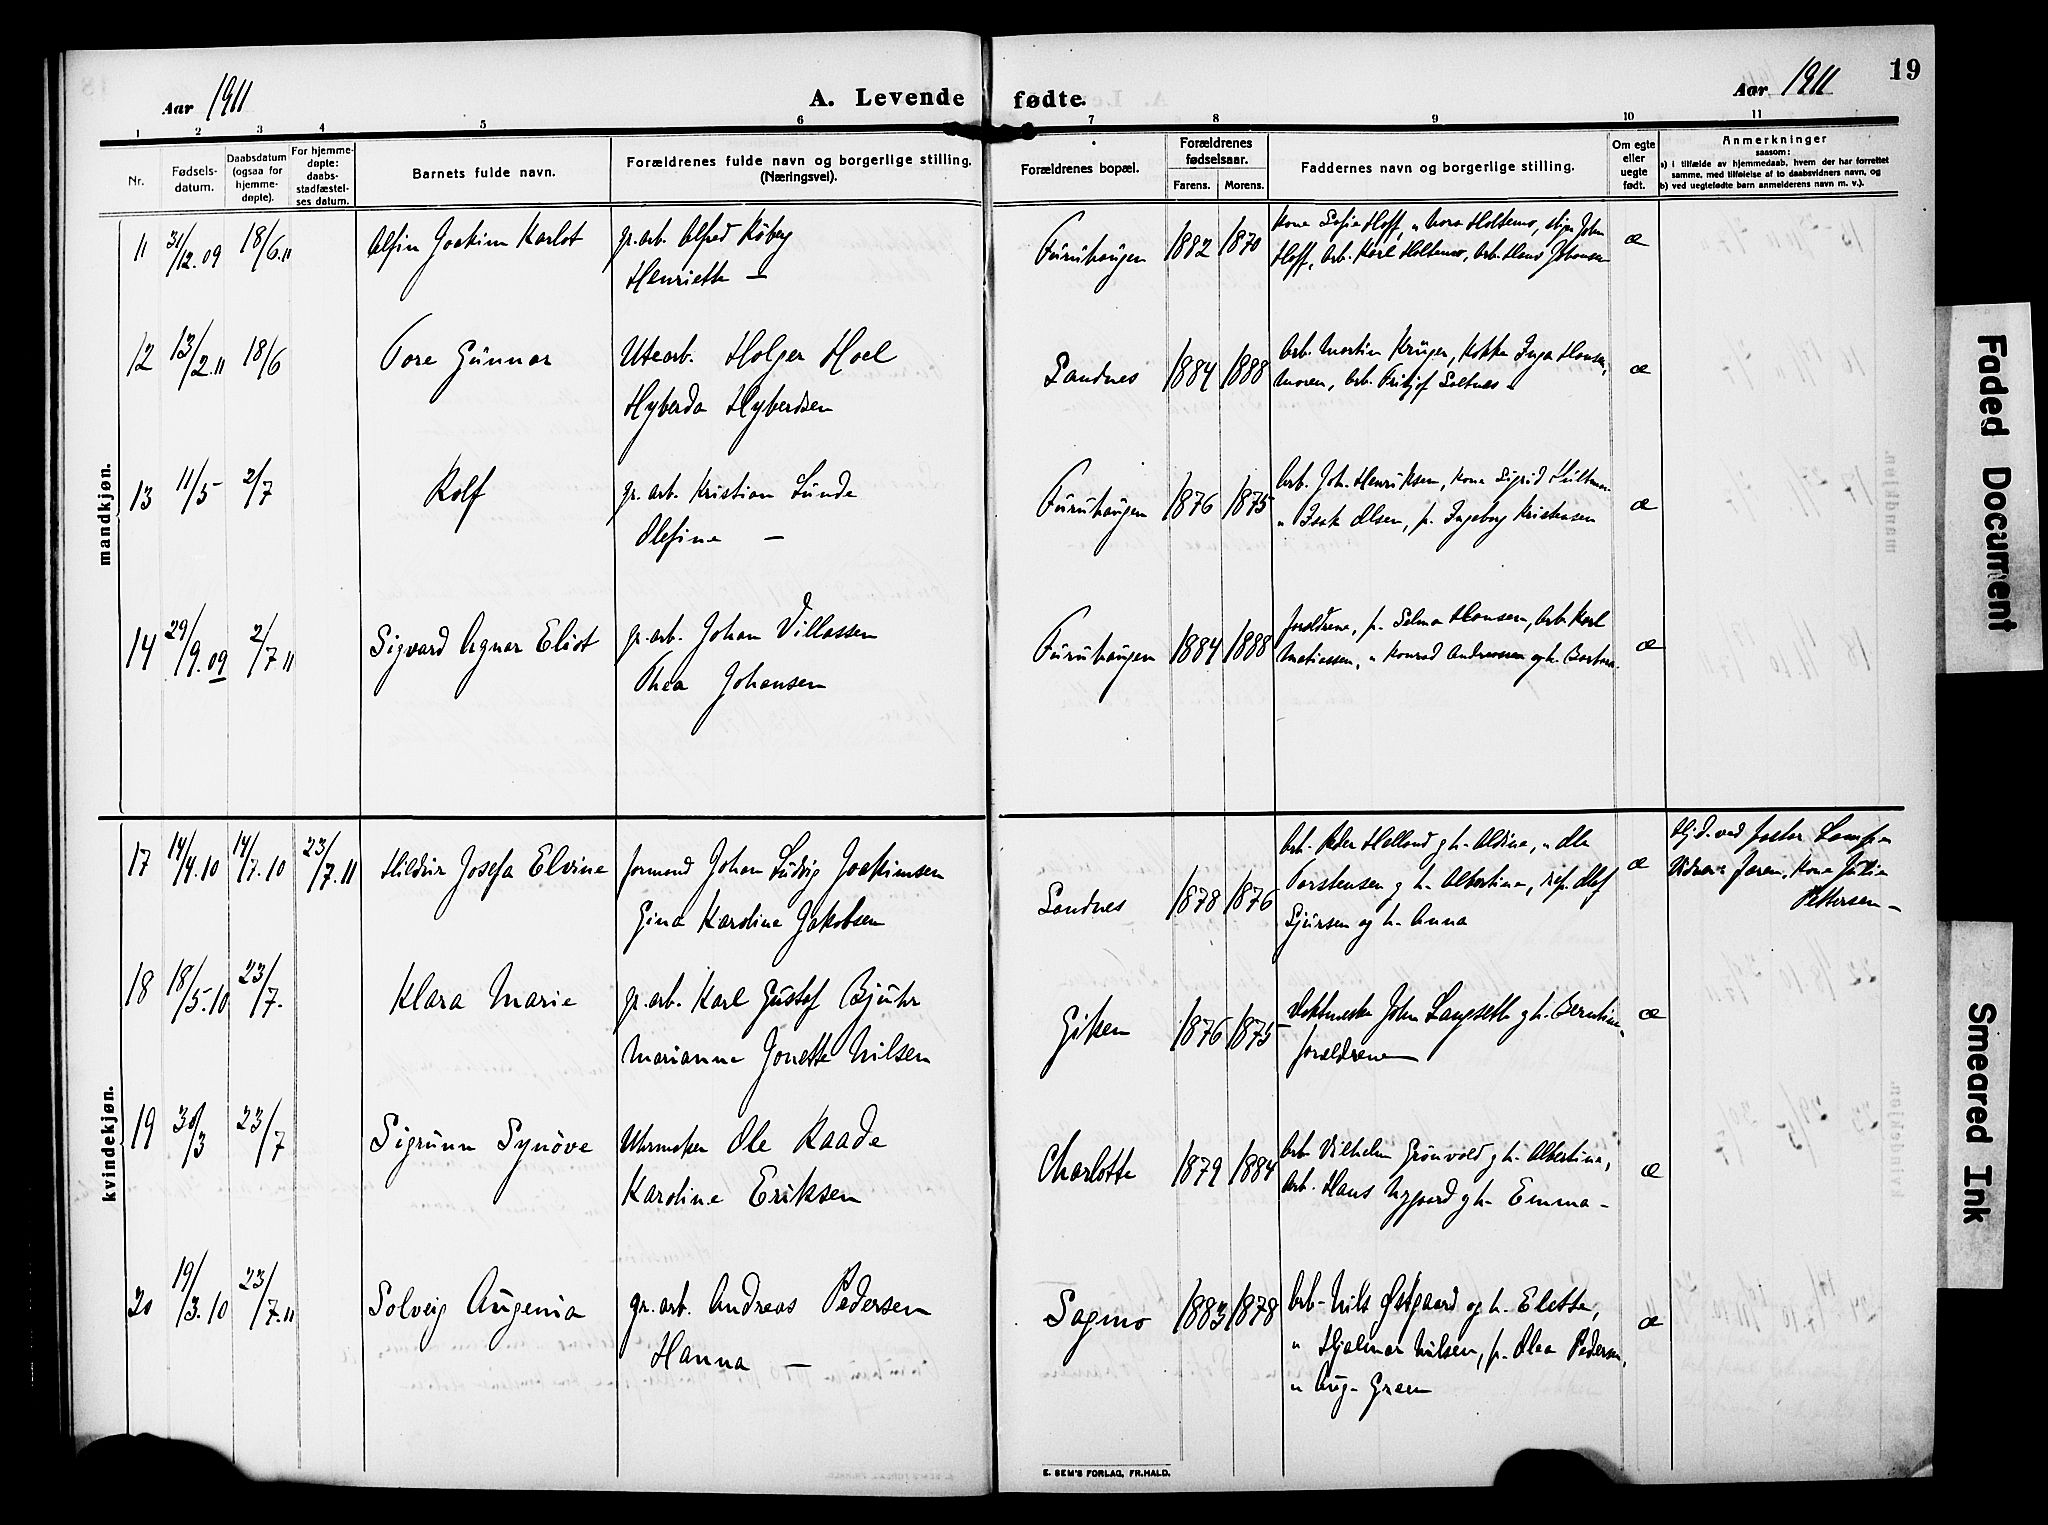 19
Aar 1911
A. Levende fødte.
Aar 1911
1 2 3 4 5 6 7 8 9 10 11
Nr.
Fødsels-
datum.
Daabsdatum
(ogsaa for
hjemme-
døpte).
For hjemme-
døpte:
daabs-
stadfæstel-
ses datum.
Barnets fulde navn.
Forældrenes fulde navn og borgerlige stilling.
(Næringsvei).
Forældrenes bopæl.
Forældrenes
fødselsaar.
Farens. Morens.
Faddernes navn og borgerlige stilling.
Om egte
eller
uegte
født.
Anmerkninger
saasom:
a) i tilfælde av hjemmedaab, hvem der har forrettet
samme, med tilføielse af to daabsvidners navn, og
b) ved uegtefødte barn anmelderens navn m. v.).
mandkjøn.
11 31/12.09 18/6.11 Alfin Joakim Karlot gr. arb. Alfred Koberg
Henriette —
Furuhaugen 1882 1870 Kone Sofie Hoff, " Nora Holtemo, stigr John
Hoff, arb. Karl Holtemo, arb. Hans Johansen
æ
12 13/2.11 18/6 Tore Gunnar Utearb. Holger Hoel
Hyberda Hybertsen
Sandnes 1884 1888 Arb. Martin Krüger, Kokke Inga Hansen,
moren, arb. Fritjof Soltnes -
æ
13 11/5 2/7 Rolf gr. arb. Kristian Lunde
Olefine —
Furuhaugen 1876 1875 Arb. Joh. Henriksen, Kone Sigrid
" Isak Olsen, p. Ingeborg Kristensen
æ
14 29/9.09 2/7 11 Sigvard Agnar Eliot gr. arb. Johan Villassen
Thea Johansen
Furuhaugen 1884 1888 foreldrene, p. Selma Hansen, Arb. Karl
Matiassen, " Konrad Andreassen og h. Barbara.
æ
kvindekjøn.
17 14/4.10 14/7.10 23/7.11 Hildur Josefa Elvine formand Johan Ludvig Joakimsen
Gina Karoline Jakobsen
Sandnes 1878 1876 Arb. Peder Helland og h. Aldine, " Ole
Torstensen og h. Albertine, rep. Olaf
Sjursen og h. Anna
æ
Hjd. ved
Kone Julie
Pettersen -
18 18/5.10 23/7. Klara Marie gr. arb. Karl Gustof Bjuhr
Marianne Jonette Nilsen
Giken 1876 1875 John Langseth og h. Berntine
foreldrene
æ
19 30/3 23/7 Sigrunn Synöve Uhrmaker Ole Kaade
Karoline Eriksen
Charlotte 1879 1884 Arb. Vilhelm Grönvold og h. Albertine,
arb. Hans Nygaard og h. Emma -
æ
20 19/3.10 23/7.11 Solveig Augenia gr. arb. Andreas Pedersen
Hanna —
Sagmo 1883 1878 Arb. Nils Østgaard og h. Elette,
" Hjalmar Nilsen, p. Olea Pedersen,
" Aug. Green
æ
E. SEM'S FORLAG, FR.HALD.
Faded Document
Smeared Ink